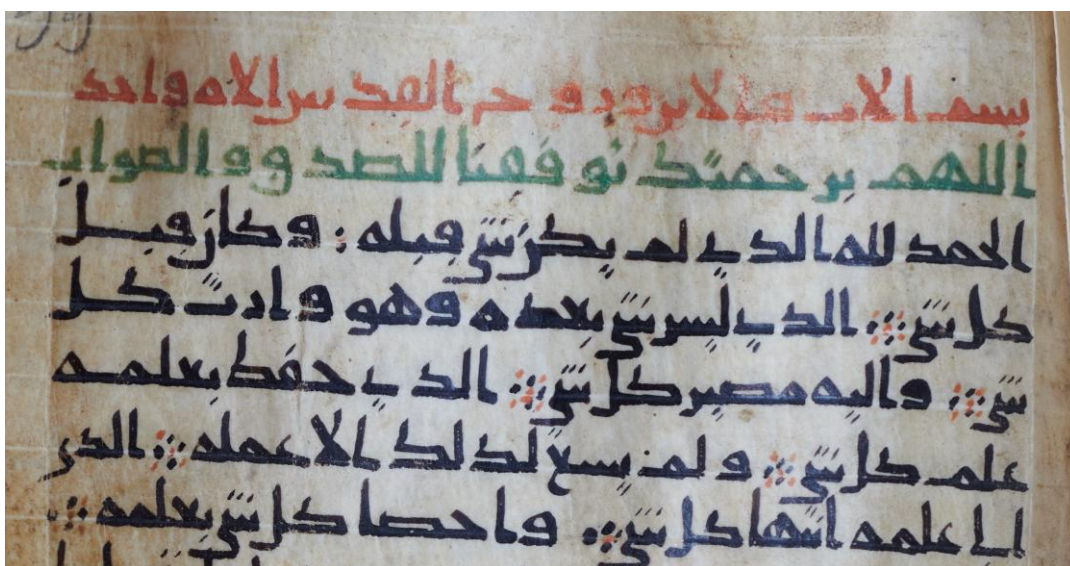 بسم الاب والابن وروح القدس الاه واحد
اللهم برحمتك توفقنا للصدق والصواب
الحمد لله الذي لم يكن شي قبله : وكان قبل
كل شي ⁘ الذي ليس شي بعده وهو وارث كل
شي ⁘ واليه مصير كل شي ⁘ الذي حفظ بعلمه
علم كل شي ⁘ ولم يسع لذلك الا علمه ⁘ الذي
الى علمه انتها كل شي ⁘ واحصا كل شي بعلمه ⁘